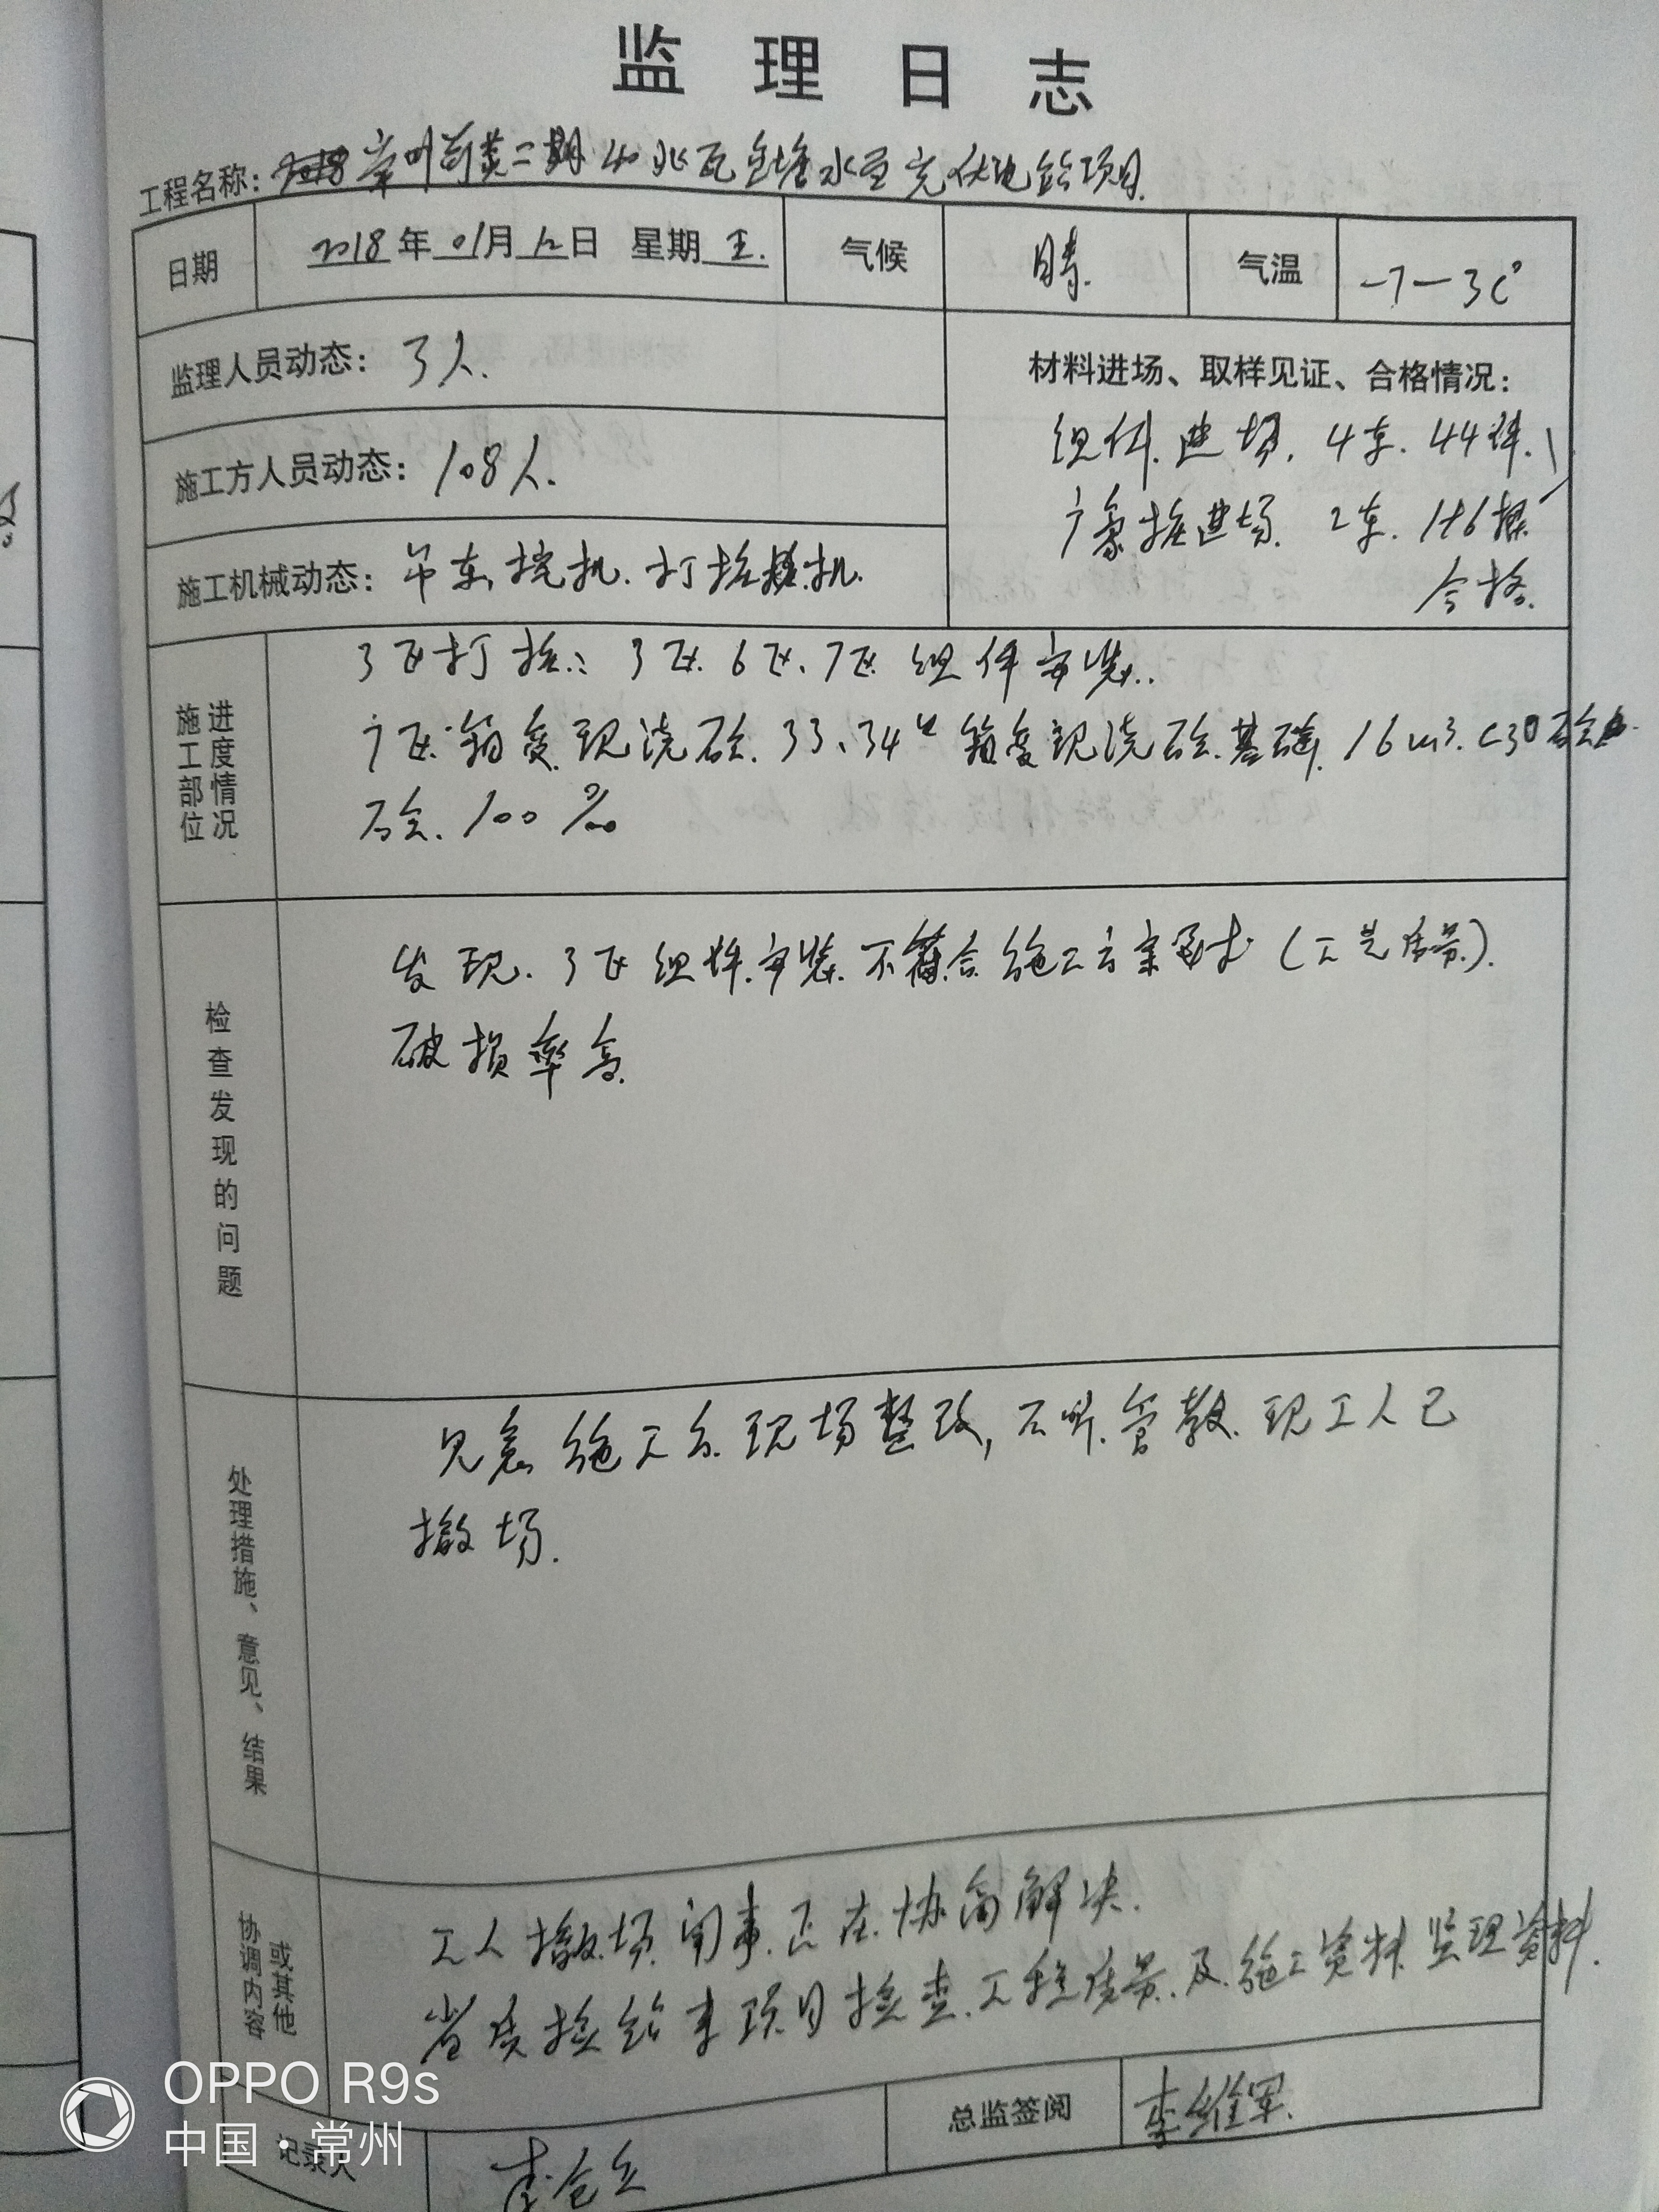 监理日志
工程名称: 常州 二期40兆瓦 水面光伏电站项目.
日期 2018年01月12日 星期五. 气候 晴. 气温 -7-3C°
监理人员动态: 3人.
材料进场、取样见证、合格情况:
组件.进场. 4车. 44件.
施工方人员动态: 108人.
桩进场. 2车. 186根
合格.
施工机械动态: 吊车.挖机.打桩机.
施工部位 进度情况
3区打桩.: 3区.6区.7区 组件安装..
区 箱变现浇砼. 33、34# 箱变现浇砼.基础. 16m3. C30砼
砼. 100%
检查发现的问题
发现. 3区组件.安装.不符合.施工方案要求(工艺质量).
破损率高.
处理措施、意见、结果
施工 现场整改, 不听.管教. 现工人已
撤场.
协调内容 或其他
工人撤场.闹事.正在.协商解决.
省质检站来项目检查.工程质量.及.施工资料.监理资料.
记录人 李 总监签阅 李维军.
OPPO R9s
中国·常州